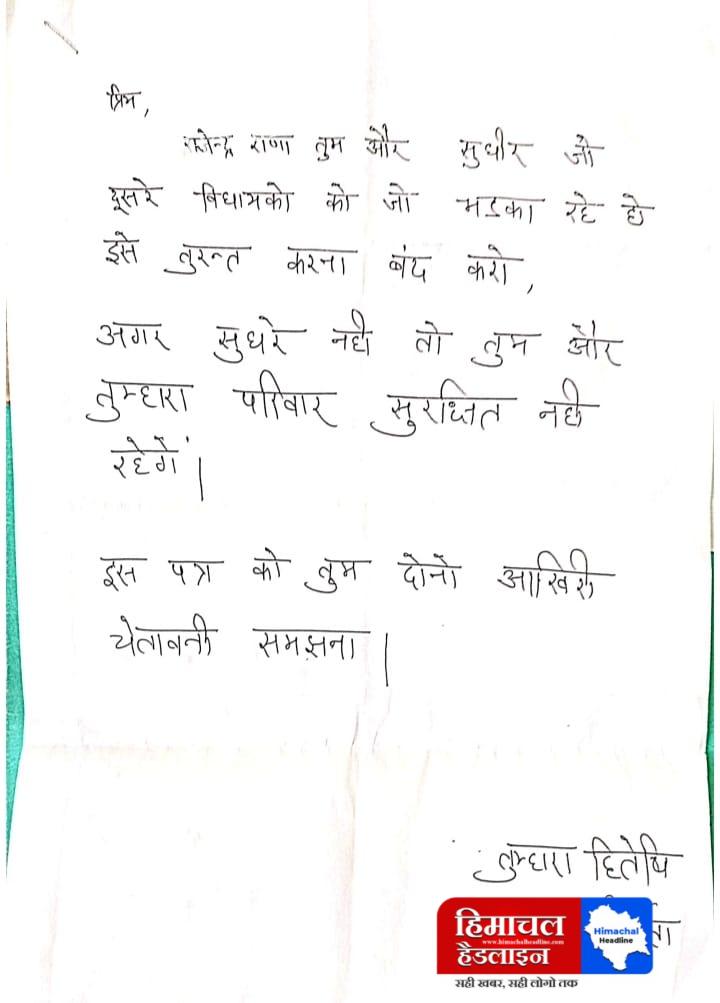 प्रिय,
राजेन्द्र राणा तुम और सुधीर जो
दूसरे विधायको को जो भडका रहे हो
इसे तुरन्त करना बंद करो,
अगर सुधरे नही तो तुम और
तुम्हारा परिवार सुरक्षित नही
रहेगें।
इस पत्र को तुम दोनो आखिरी
चेतावनी समझना।
तुम्हारा हितेषि
हिमाचल
www.himachalheadline.com
हैडलाइन
Himachal
Headline
सही खबर, सही लोगो तक